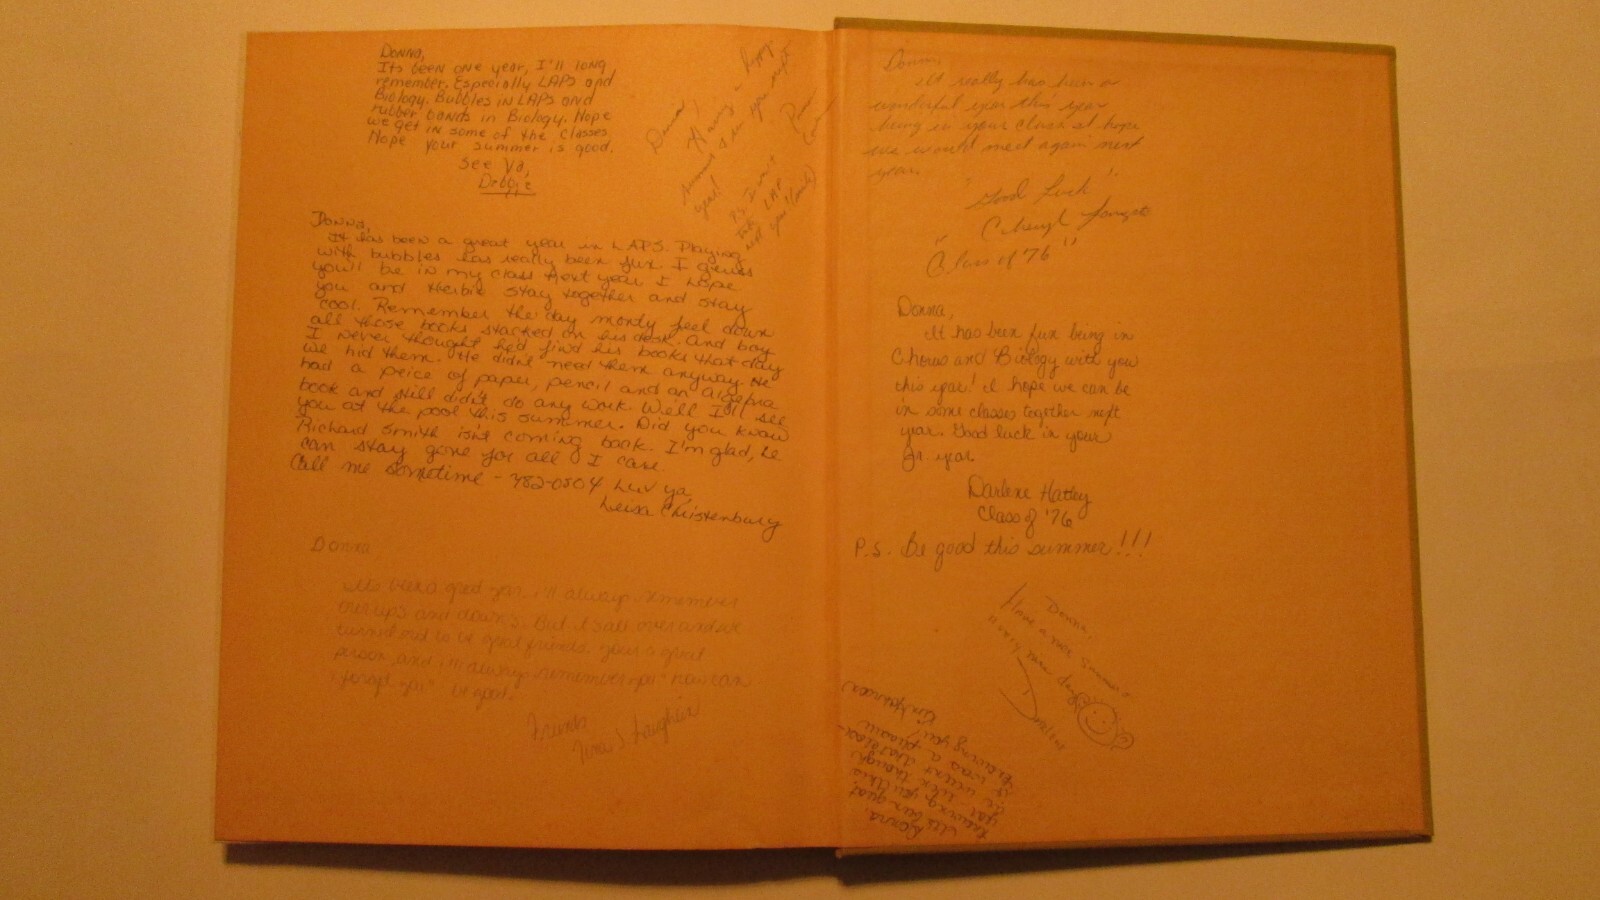 Donna,
Its been one year, I'll long
remember. Especially LAPS and
Biology. Bubbles in LAPS and
rubber bands in Biology. Hope
we get in some of the classes.
Hope your summer is good.
See Ya,
Debbie
Donna,
Having a happy
summer & see you next
year!
Donna,
It has been a great year in LAPS. Playing
with bubbles has really been fun. I guess
you'll be in my class next year I hope
you and Herbie stay together and stay
cool. Remember the day monty feel down
all those books stacked on his desk. And boy
I never thought he'd find his books that day
we hid them. He didn't need them anyway. He
had a peice of paper, pencil and an algebra
book and still didn't do any work. Well I'll see
you at the pool this summer. Did you know
Richard Smith isn't coming back. I'm glad, he
can stay gone for all I care.
Call me sometime - 782-0504 Luv ya,
Leisa Christenbury
Donna
It's been a good year. i'll always remember
our ups and downs. But it's all over and we
turned out to be great friends. your a great
person and i'll always remember you "how can
I forget you" be good.
Friends
Tina
Donna,
It really has been a
wonderful year this year
being in your class. I hope
we would meet again next
year.
"Good Luck"
Cheryl
"Class of '76"
Donna,
It has been fun being in
Chorus and Biology with you
this year! I hope we can be
in some classes together next
year. Good luck in your
Jr. year
Darlene Hatley
Class of '76
P.S. Be good this summer!!!
Donna,
Have a nice summer &
every nice day
Darlene
Donna,
It's been great
knowing you this
year
knowing you!
Kim